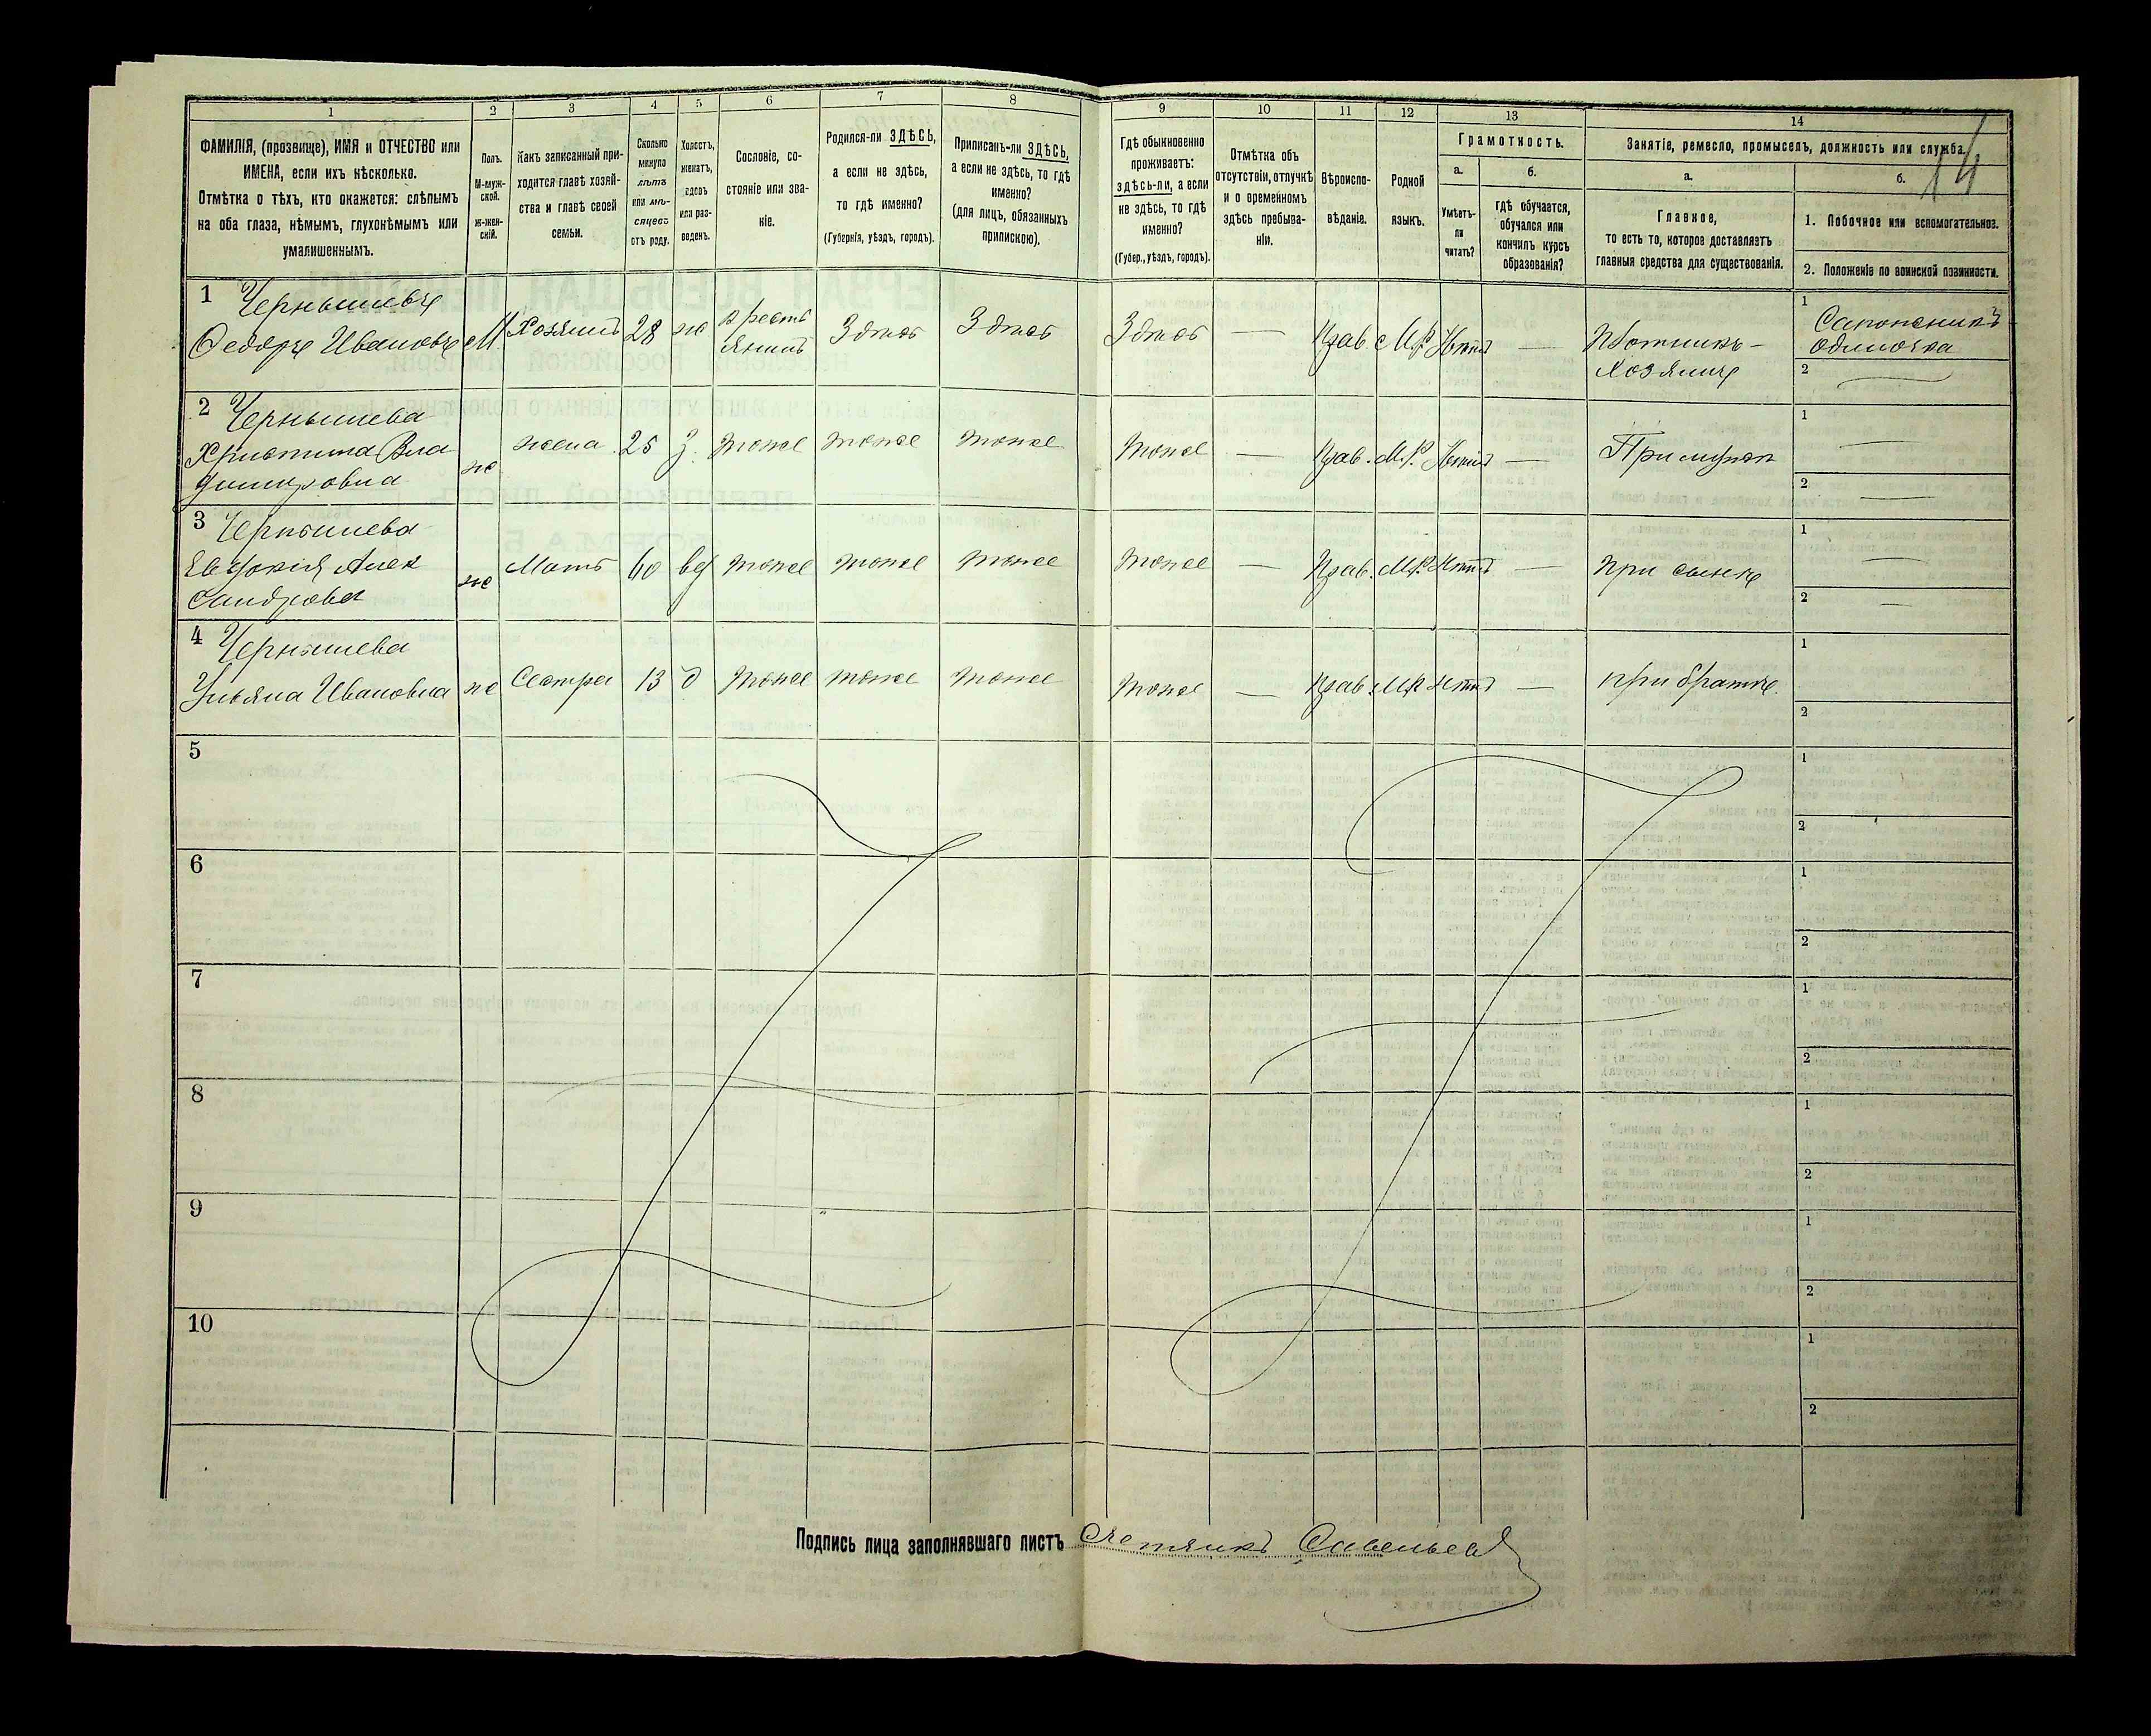 1 2 3 4 5 6 7 8 9 10 11 12 13 14
14
ФАМИЛІЯ, (прозвище), ИМЯ и ОТЧЕСТВО или
ИМЕНА, если ихъ нѣсколько.
Отмѣтка о тѣхъ, кто окажется: слѣпымъ
на оба глаза, нѣмымъ, глухонѣмымъ или
умалишеннымъ.
Полъ.
М-муж-
ской.
ж-жен-
скій.
Какъ записанный при-
ходится главѣ хозяй-
ства и главѣ своей
семьи.
Сколько
минуло
лѣтъ
или мѣ-
сяцевъ
отъ роду.
Холостъ,
женатъ,
вдовъ
или раз-
веденъ.
Сословіе, со-
стояніе или зва-
ніе.
Родился-ли ЗДѢСЬ,
а если не здѣсь,
то гдѣ именно?
(Губернія, уѣздъ, городъ).
Приписанъ-ли ЗДѢСЬ,
а если не здѣсь, то гдѣ
именно?
(для лицъ, обязанныхъ
припискою).
Гдѣ обыкновенно
проживаетъ:
здѣсь-ли, а если
не здѣсь, то гдѣ
именно?
(Губер., уѣздъ, городъ).
Отмѣтка объ
отсутствіи, отлучкѣ
и о временномъ
здѣсь пребыва-
ніи.
Вѣроиспо-
вѣданіе.
Родной
языкъ.
Грамотность.
а.
Умѣетъ-
ли
читать?
б.
гдѣ обучается,
обучался или
кончилъ курсъ
образованія?
Занятіе, ремесло, промыселъ, должность или служба.
а.
Главное,
то есть то, которое доставляетъ
главныя средства для существованія.
б.
1. Побочное или вспомогательное.
2. Положеніе по воинской повинности.
1 Чернышевъ
Федоръ Ивановъ М Хозяинъ 28 ж Крестъ
янинъ Здѣсь Здѣсь Здѣсь — Прав. М.Р. Нѣтъ — Плотникъ -
Хозяинъ
1 Сапожникъ
одиночка
2 —
2 Чернышева
Христина Вла
димировна ж жена 25 З. тоже тоже тоже тоже — Прав. М.Р. Нѣтъ — При мужѣ
1 —
2 —
3 Чернышева
Евдокія Алек
сандрова ж Мать 60 вд тоже тоже тоже тоже — Прав. М.Р. Нѣтъ — при сынѣ
1 —
2 —
4 Чернышева
Ульяна Ивановна ж Сестра 13 д тоже тоже тоже тоже — Прав. М.Р. Нѣтъ — при братѣ.
1
2
5
1
2
6
1
2
7
1
2
8
1
2
9
1
2
10
1
2
Подпись лица заполнявшаго листъ Счетчикъ Савельев